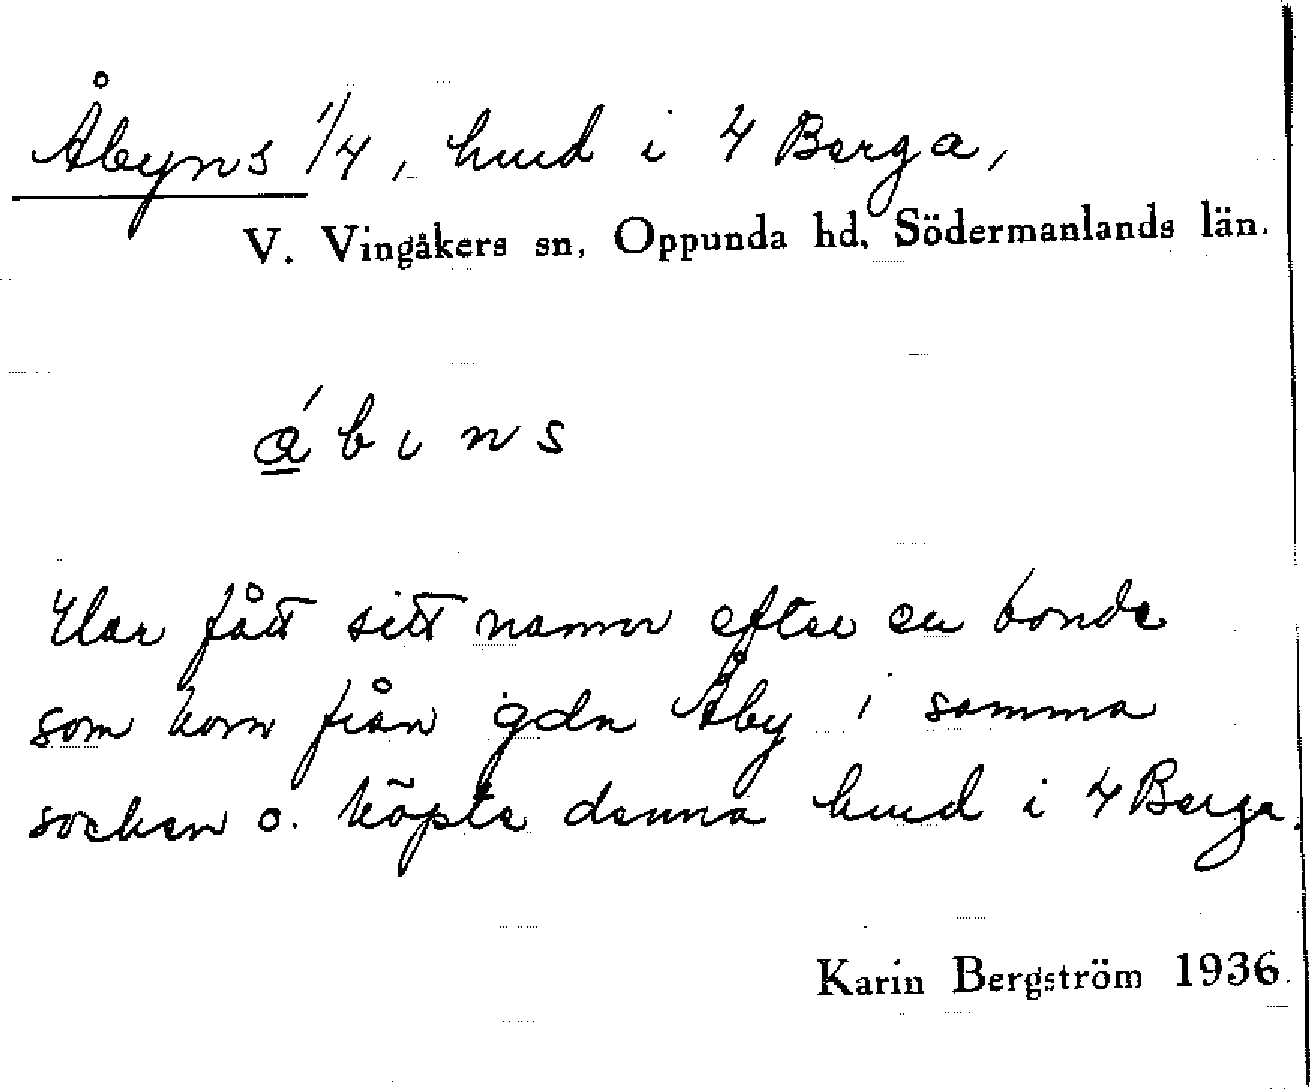 Åbyns 1/4, hmd i 4 Berga,
V. Vingåkers sn, Oppunda hd, Södermanlands län.
á̲ b ı n s
Har fått sitt namn efter en bonde
som kom från gdn Åby i samma
socken o. köpte denna hmd i 4 Berga.
Karin Bergström 1936.